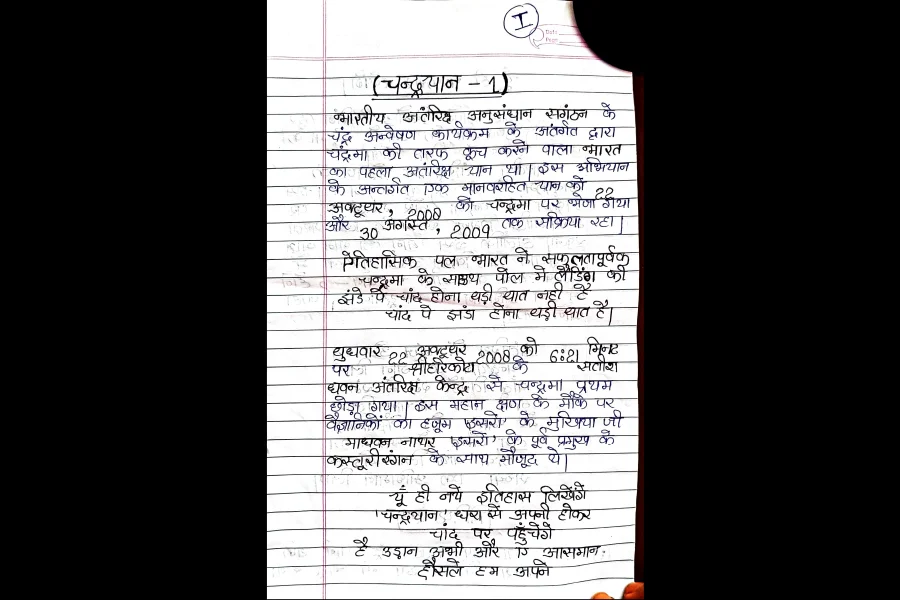 I
(चन्द्रयान - 1)
भारतीय अंतरिक्ष अनुसंधान सगंठन के
चंद्र अन्वेषण कार्यक्रम के अंतर्गत द्वारा
चंद्रमा की तरफ कूच करने वाला भारत
का पहला अंतरिक्ष यान था। इस अभियान
के अन्तर्गत एक मानवरहित यान को 22
अक्टूबर, 2008 को चन्द्रमा पर भेजा गया
और 30 अगस्त, 2009 तक सक्रिया रहा।
ऐतिहासिक पल भारत ने सफलतापूर्वक
चन्द्रमा के साउथ पोल में लैंडिंग की
झंडे पे चांद होना बड़ी बात नही है
चांद पे झंडा होना बड़ी बात है।
बुधवार 22 अक्टूबर 2008 को 6:21 मिनट
पर श्रीहरिकोटा के सतीश
धवन अंतरिक्ष केन्द्र से चन्द्रमा प्रथम
छोड़ा गया। इस महान क्षण के मौके पर
वैज्ञानिकों का हजूम 'इसरो' के मुखिया जी
माधवन नायर 'इसरो' के पूर्व प्रमुख के
कस्तूरीरंगन के साथ मौजूद थे।
यूँ ही नये इतिहास लिखेंगे
'चन्द्रयान' धरा से अपनी होकर
चांद पर पहुँचेंगे
है उड़ान अभी और ए आसमान
हौसले हम अपने